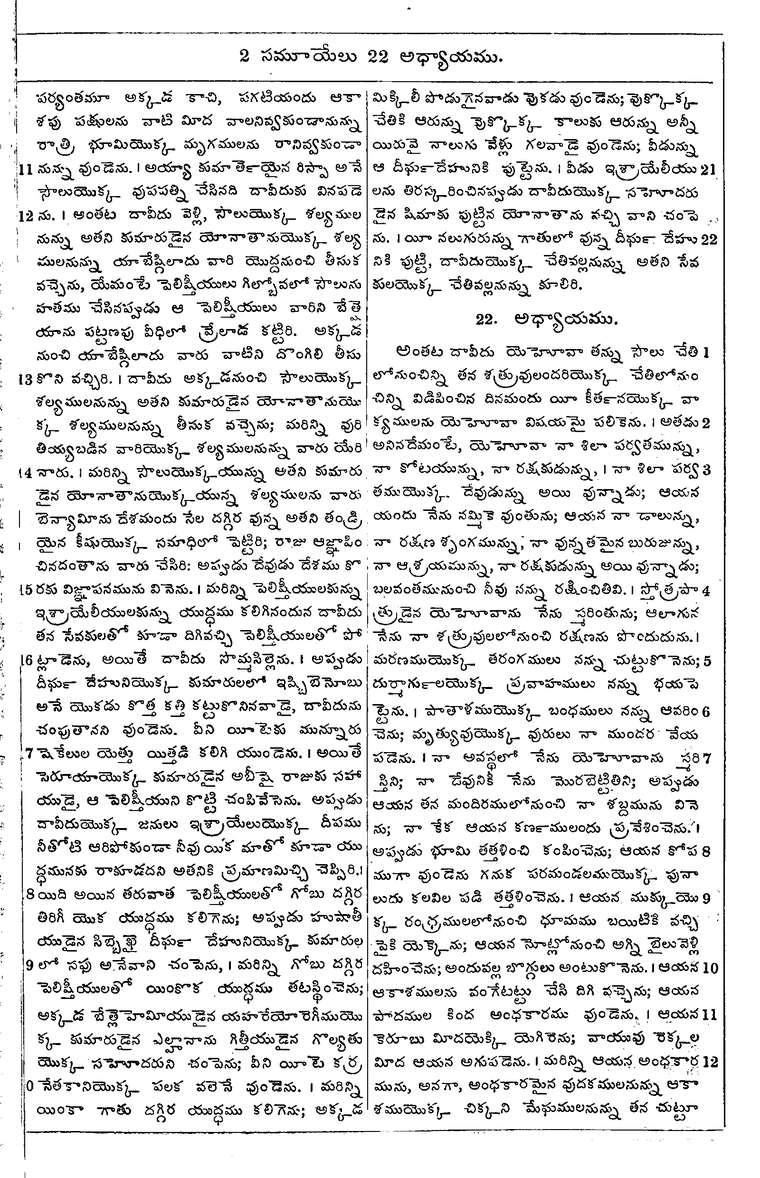 2 సమూయేలు 22 అధ్యాయము.
పర్యంతమూ అక్కడ కాచి, పగటియందు ఆకా
శపు పక్షులను వాటి మీద వాలనివ్వకుండానున్ను
రాత్రి భూమియొక్క మృగములను రానివ్వకుండా
11 నున్ను వుండెను. । అయ్యా కుమార్తెయైన రిస్పా అనే
సౌలుయొక్క వుపపత్ని చేసినది దావీదుకు వినపడె
12 ను. । అంతట దావీదు వెళ్లి, సౌలుయొక్క శల్యముల
నున్ను అతని కుమారుడైన యోనాతానుయొక్క శల్య
ములనున్ను యాబేష్గిలాదు వారి యొద్దనుంచి తీసుక
వచ్చెను, యేమంటే పెలిష్తీయులు గిల్బోవలో సౌలును
హతము చేసినప్పుడు ఆ పెలిష్తీయులు వారిని బేత్షె
యాను పట్టణపు వీధిలో వ్రేలాడ కట్టిరి. అక్కడ
నుంచి యాబేష్గిలాదు వారు వాటిని దొంగిలి తీసు
13 కొని వచ్చిరి. । దావీదు అక్కడనుంచి సౌలుయొక్క
శల్యములనున్ను అతని కుమారుడైన యోనాతానుయొ
క్క శల్యములనున్ను తీసుక వచ్చెను; మరిన్ని వురి
తియ్యబడిన వారియొక్క శల్యములనున్ను వారు యేరి
14 నారు. । మరిన్ని సౌలుయొక్కయున్ను అతని కుమారు
డైన యోనాతానుయొక్కయున్న శల్యములను వారు
బెన్యామీను దేశమందు సేల దగ్గిర వున్న అతని తండ్రి
యైన కీషుయొక్క సమాధిలో పెట్టిరి; రాజు ఆజ్ఞాపిం
చినదంతాను వారు చేసిరి: అప్పుడు దేవుడు దేశము కొ
15 రకు విజ్ఞాపనమును వినెను. । మరిన్ని పెలిష్తీయులకున్ను
ఇశ్రాయేలీయులకున్ను యుద్ధము కలిగినందున దావీదు
తన సేవకులతో కూడా దిగివచ్చి పెలిష్తీయులతో పో
16 ట్లాడెను, అయితే దావీదు సొమ్మసిల్లెను. । అప్పుడు
దీర్ఘ దేహునియొక్క కుమారులలో ఇష్బిబెనోబు
అనే యొకడు కొత్త కత్తి కట్టుకొనినవాడై, దావీదును
చంపుతానని వుండెను. వీని యీటెకు మున్నూరు
7 షెకేలుల యెత్తు యిత్తడి కలిగి యుండెను. । అయితే
సెరూయాయొక్క కుమారుడైన అబీషై రాజుకు సహా
యుడై, ఆ పెలిష్తీయుని కొట్టి చంపివేసెను. అప్పుడు
దావీదుయొక్క జనులు ఇశ్రాయేలుయొక్క దీపము
నీతోటి ఆరిపోకుండా నీవు యిక మాతో కూడా యు
ద్ధమునకు రాకూడదని అతనికి ప్రమాణమిచ్చి చెప్పిరి.।
8 యిది అయిన తరువాత పెలిష్తీయులతో గోబు దగ్గిర
తిరిగీ యొక యుద్ధము కలిగెను; అప్పుడు హుషాతీ
యుడైన సిబ్బెఖై దీర్ఘ దేహునియొక్క కుమారుల
9 లో సఫు అనేవాని చంపెను, । మరిన్ని గోబు దగ్గిర
పెలిష్తీయులతో యింకొక యుద్ధము తటస్థించెను;
అక్కడ బేత్లెహేమియుడైన యహరేయోరెగీముయొ
క్క కుమారుడైన ఎల్హానాను గిత్తీయుడైన గొల్యతు
యొక్క సహోదరుని చంపెను; వీని యీటె కర్ర
0 నేతకానియొక్క పలక వలెనే వుండెను. । మరిన్ని
యింకా గాతు దగ్గిర యుద్ధము కలిగెను; అక్కడ
మిక్కిలీ పొడుగైనవాడు వొకడు వుండెను; వొక్కొక్క
చేతికి ఆరున్ను వొక్కొక్క కాలుకు ఆరున్ను అన్నీ
యిరువై నాలుగు వేళ్లు గలవాడై వుండెను; వీడున్ను
ఆ దీర్ఘదేహునికి పుట్టెను. । వీడు ఇశ్రాయేలీయు 21
లను తిరస్కరించినప్పుడు దావీదుయొక్క సహోదరు
డైన షిమాకు పుట్టిన యోనాతాను వచ్చి వాని చంపె
ను. । యీ నలుగురున్ను గాతులో వున్న దీర్ఘ దేహు 22
నికి పుట్టి, దావీదుయొక్క చేతివల్లనున్ను అతని సేవ
కులయొక్క చేతివల్లనున్ను కూలిరి.
22. అధ్యాయము.
అంతట దావీదు యెహోవా తన్ను సౌలు చేతి 1
లోనుంచిన్ని తన శత్రువులందరియొక్క చేతిలోనుం
చిన్ని విడిపించిన దినమందు యీ కీర్తనయొక్క వా
క్యములను యెహోవా విషయమై పలికెను. । అతడు 2
అనినదేమంటే, యెహోవా నా శిలా పర్వతమున్ను,
నా కోటయున్ను, నా రక్షకుడున్ను, । నా శిలా పర్వ 3
తముయొక్క దేవుడున్ను అయి వున్నాడు; ఆయన
యందు నేను నమ్మికె వుంతును; ఆయన నా డాలున్ను,
నా రక్షణ శృంగమున్ను, నా వున్నతమైన బురుజున్ను,
నా ఆశ్రయమున్ను, నా రక్షకుడున్ను అయి వున్నాడు;
బలవంతమునుంచి నీవు నన్ను రక్షించితివి. । స్తోత్రపా 4
త్రుడైన యెహోవాను నేను స్మరింతును; ఆలాగున
నేను నా శత్రువులలోనుంచి రక్షణను పొందుదును.।
మరణముయొక్క తరంగములు నన్ను చుట్టుకొనెను; 5
దుర్మార్గులయొక్క ప్రవాహములు నన్ను భయపె
ట్టెను. । పాతాళముయొక్క బంధములు నన్ను ఆవరిం 6
చెను; మృత్యువుయొక్క వురులు నా ముందర వేయ
పడెను. । నా అవస్థలో నేను యెహోవాను స్మరి 7
స్తిని; నా దేవునికే నేను మొరబెట్టితిని; అప్పుడు
ఆయన తన మందిరములోనుంచి నా శబ్దమును వినె
ను; నా కేక ఆయన కర్ణములందు ప్రవేశించెను.।
అప్పుడు భూమి తత్తళించి కంపించెను; ఆయన కోప 8
ముగా వుండెను గనుక పరమండలముయొక్క పునా
లుదు కలవిల పడి తత్తళించెను. । ఆయన ముక్కుయొ 9
క్క రంధ్రములలోనుంచి ధూమము బయిటికి వచ్చి
పైకి యెక్కెను; ఆయన నోట్లోనుంచి అగ్ని బైలువెళ్లి
దహించెను; అందువల్ల బొగ్గులు అంటుకొనెను. । ఆయన 10
ఆకాశములను వంగేటట్టు చేసి దిగి వచ్చెను; ఆయన
పాదముల కింద అంధకారము వుండెను. । ఆయన 11
కెరూబు మీదయెక్కి యెగిరెను; వాయువు రెక్కల
మీద ఆయన అగుపడెను. । మరిన్ని ఆయన అంధకార 12
మును, అనగా, అంధకారమైన వుదకములనున్ను ఆకా
శముయొక్క చిక్కని మేఘములనున్ను తన చుట్టూ